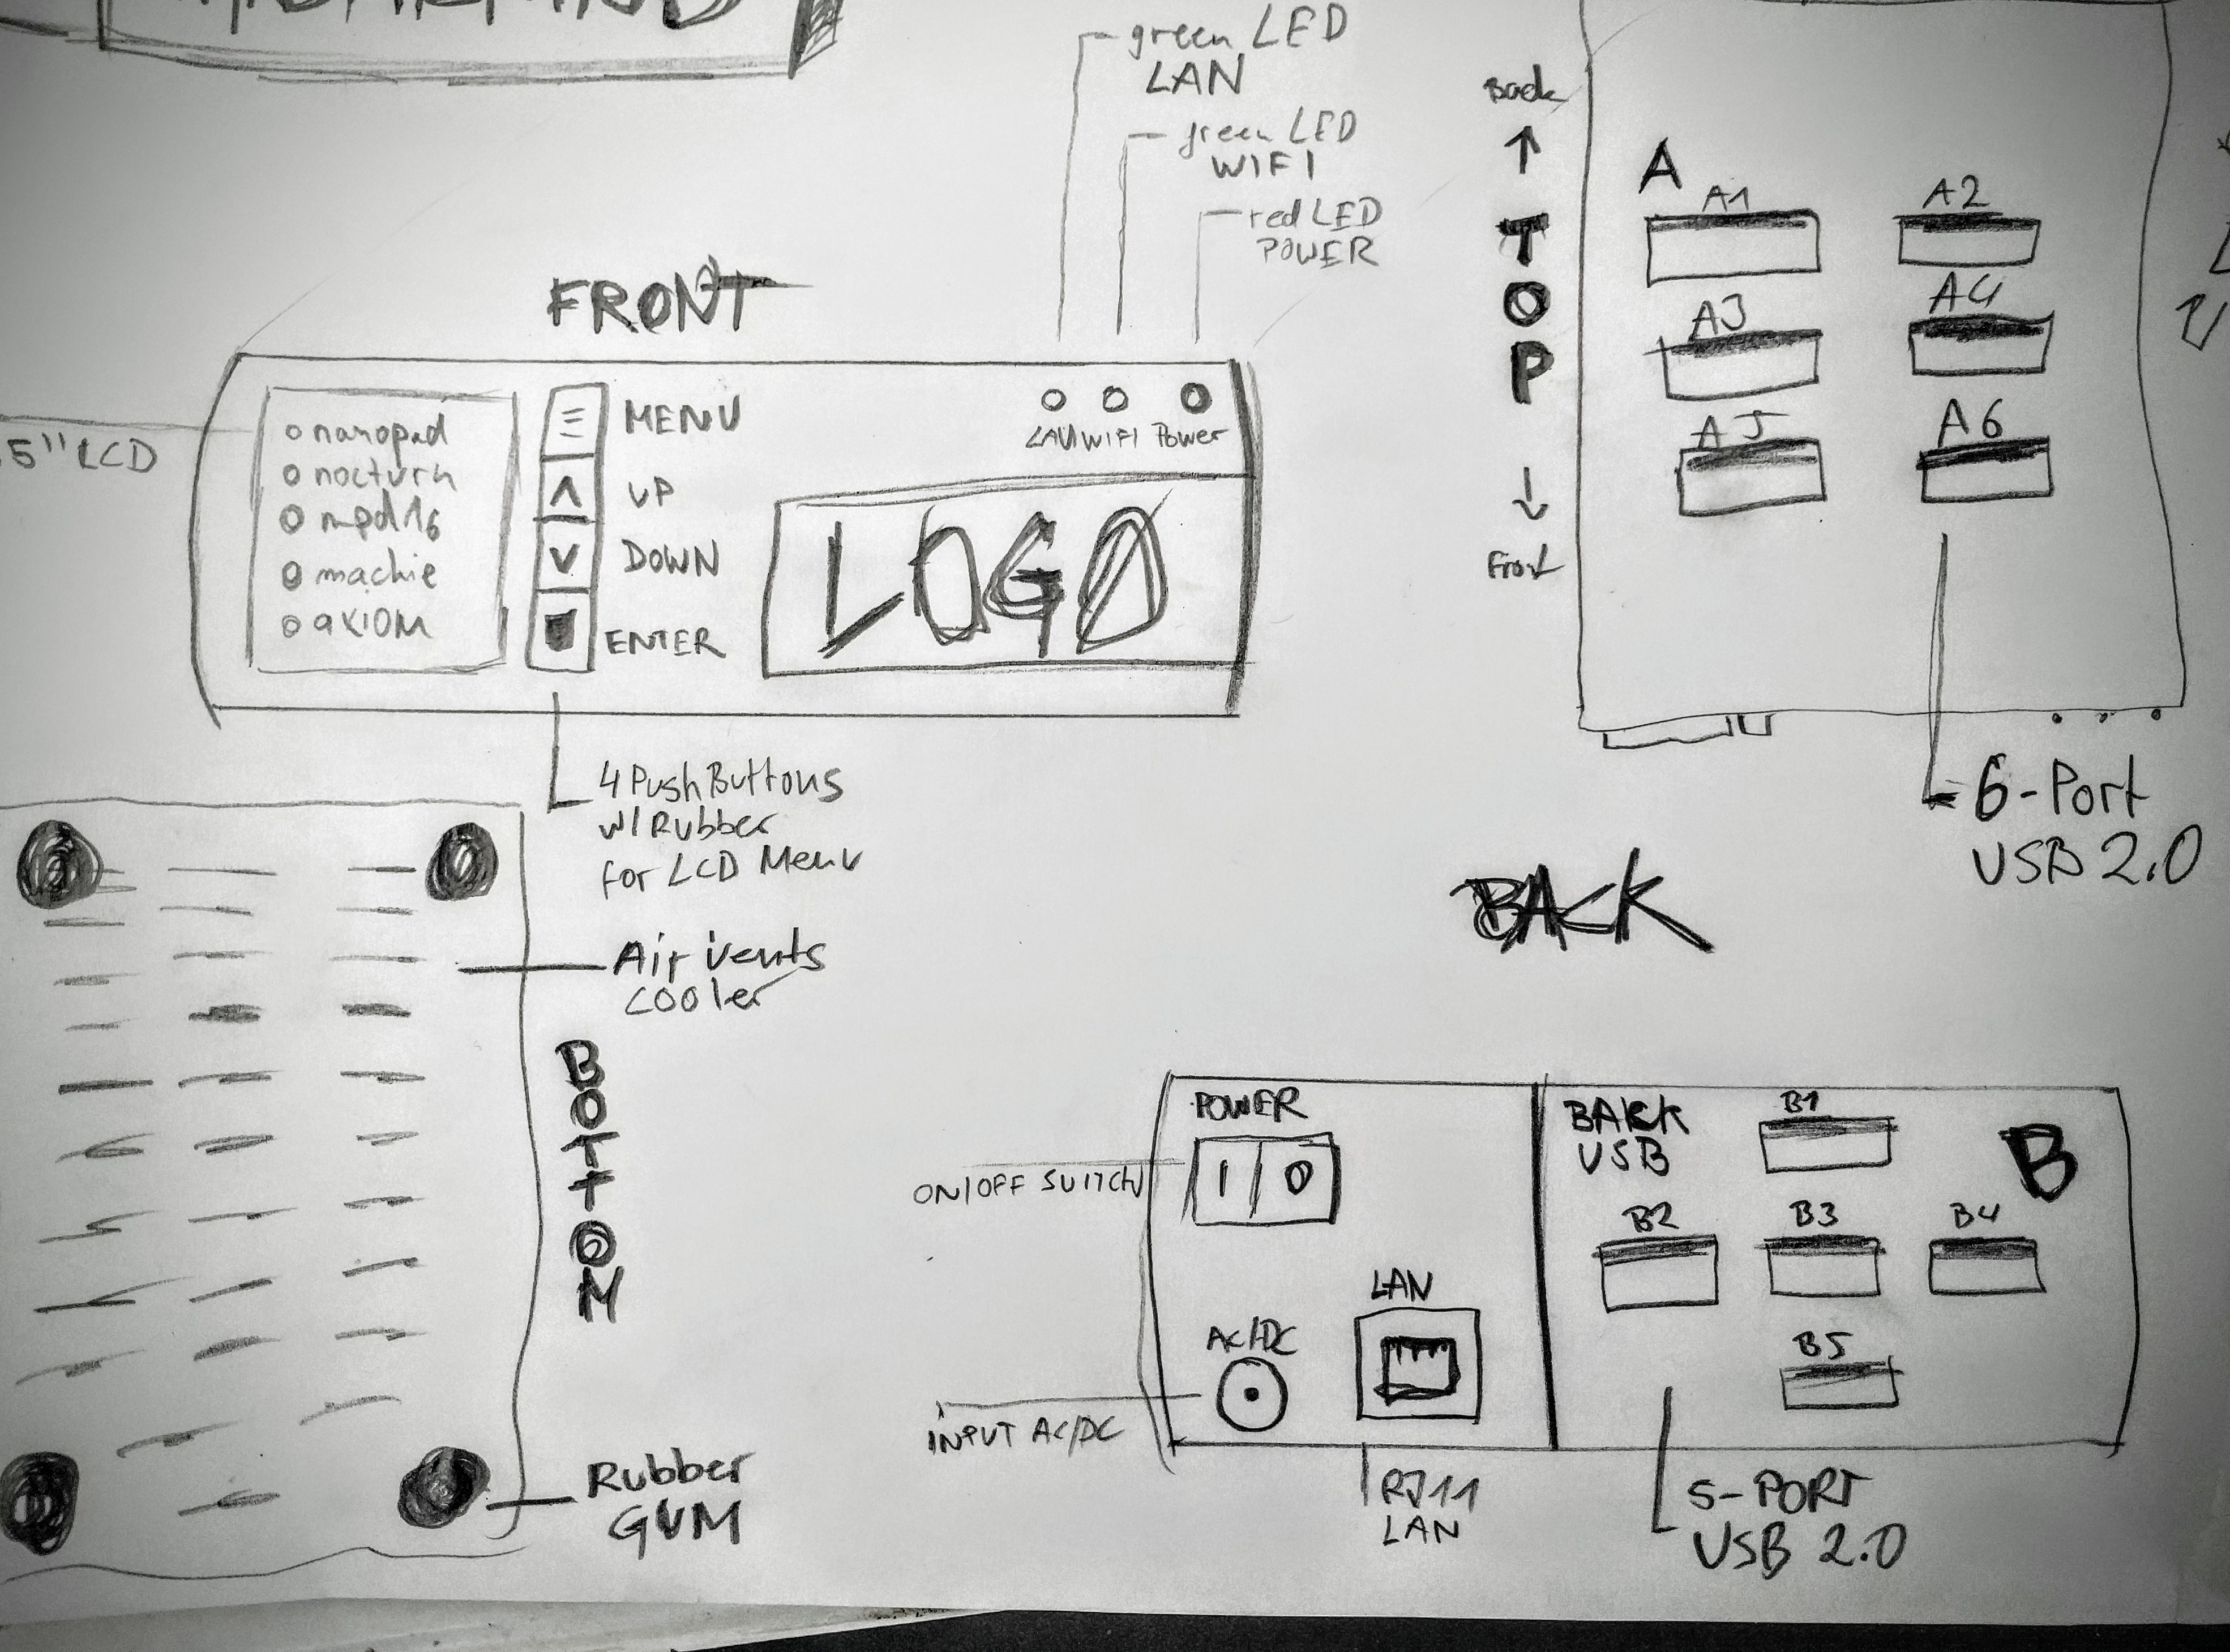 green LED
LAN
green LED
WIFI
red LED
POWER
FRONT
5" LCD
nanopad
nocturn
mpd16
machie
axiom
MENU
UP
DOWN
ENTER
LAN WIFI Power
LOGO
4 Push Buttons
w/ Rubber
for LCD Menu
Back
↑
TOP
↓
Front
A
A1
A2
A3
A4
A5
A6
6-Port
USB 2.0
Air vents
cooler
BOTTOM
Rubber
GUM
BACK
POWER
I O
ON/OFF SWITCH
AC/DC
INPUT AC/DC
LAN
RJ11
LAN
BACK
USB
B
B1
B2
B3
B4
B5
5-PORT
USB 2.0